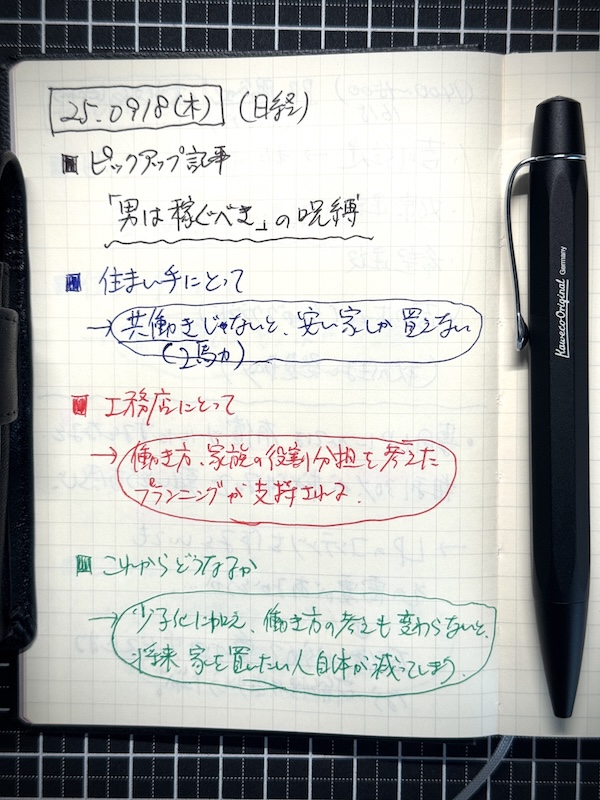 25.0918(木) (日経)
■ ピックアップ記事
「男は稼ぐべき」の呪縛
■ 住まい手にとって
→ 共働きじゃないと、安い家しか買えない
(2馬力)
■ 工務店にとって
→ 働き方、家族の役割分担を考えた
プランニングが支持される.
■ これからどうなるか
→ 少子化に加え、働き方の考えも変わらないと、
将来 家を買いたい人自体が減ってしまう.
Kaweco-Original Germany